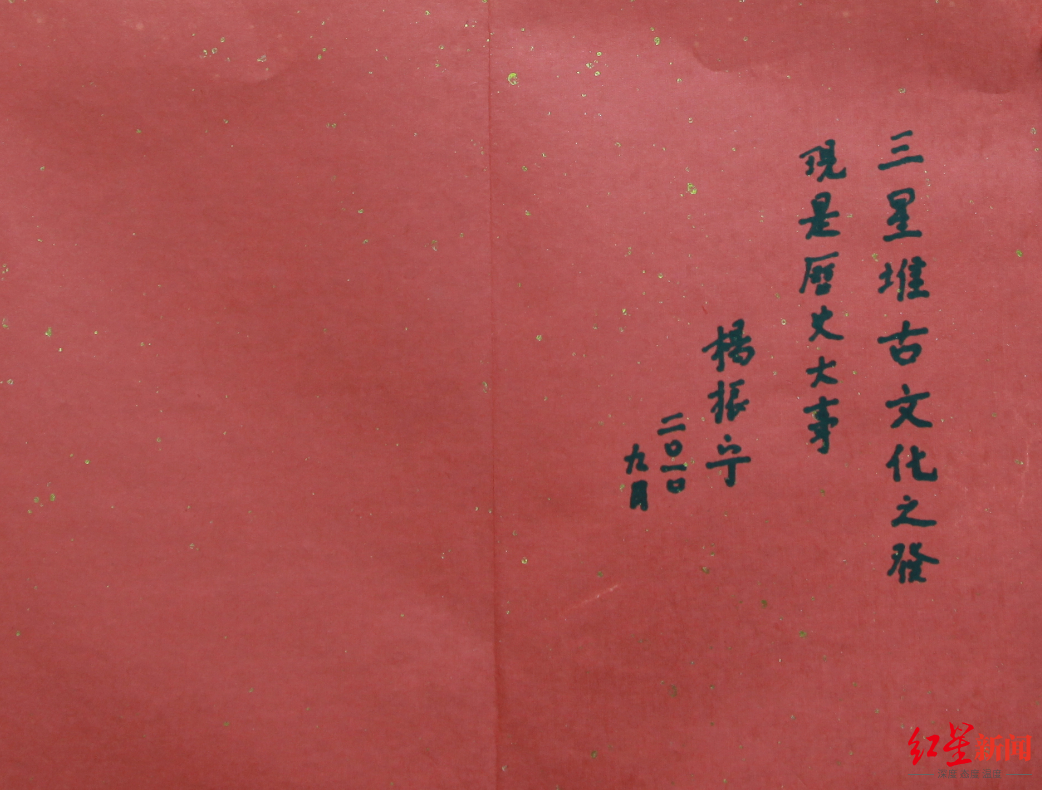 三星堆古文化之發
現是历史大事
楊振宁
二〇一〇
九月
红星新闻